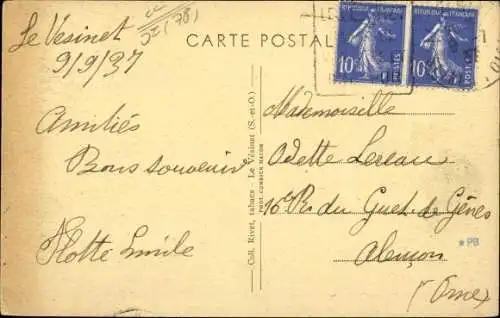 Le Vésinet
9/9/37
(78)
CARTE POSTAL
REPUBLIQUE FRANÇAISE
10c
POSTES
REPUBLIQUE FRANÇAISE
10c
POSTES
Amitiés
Bons souvenirs
Coll. Rivet, tabacs - Le Vésinet (S.-et-O.)
PHOT. COMBIER MACON
Mademoiselle
Odette
Rue du Guet de Gênes
Alençon
(Orne)
*PB